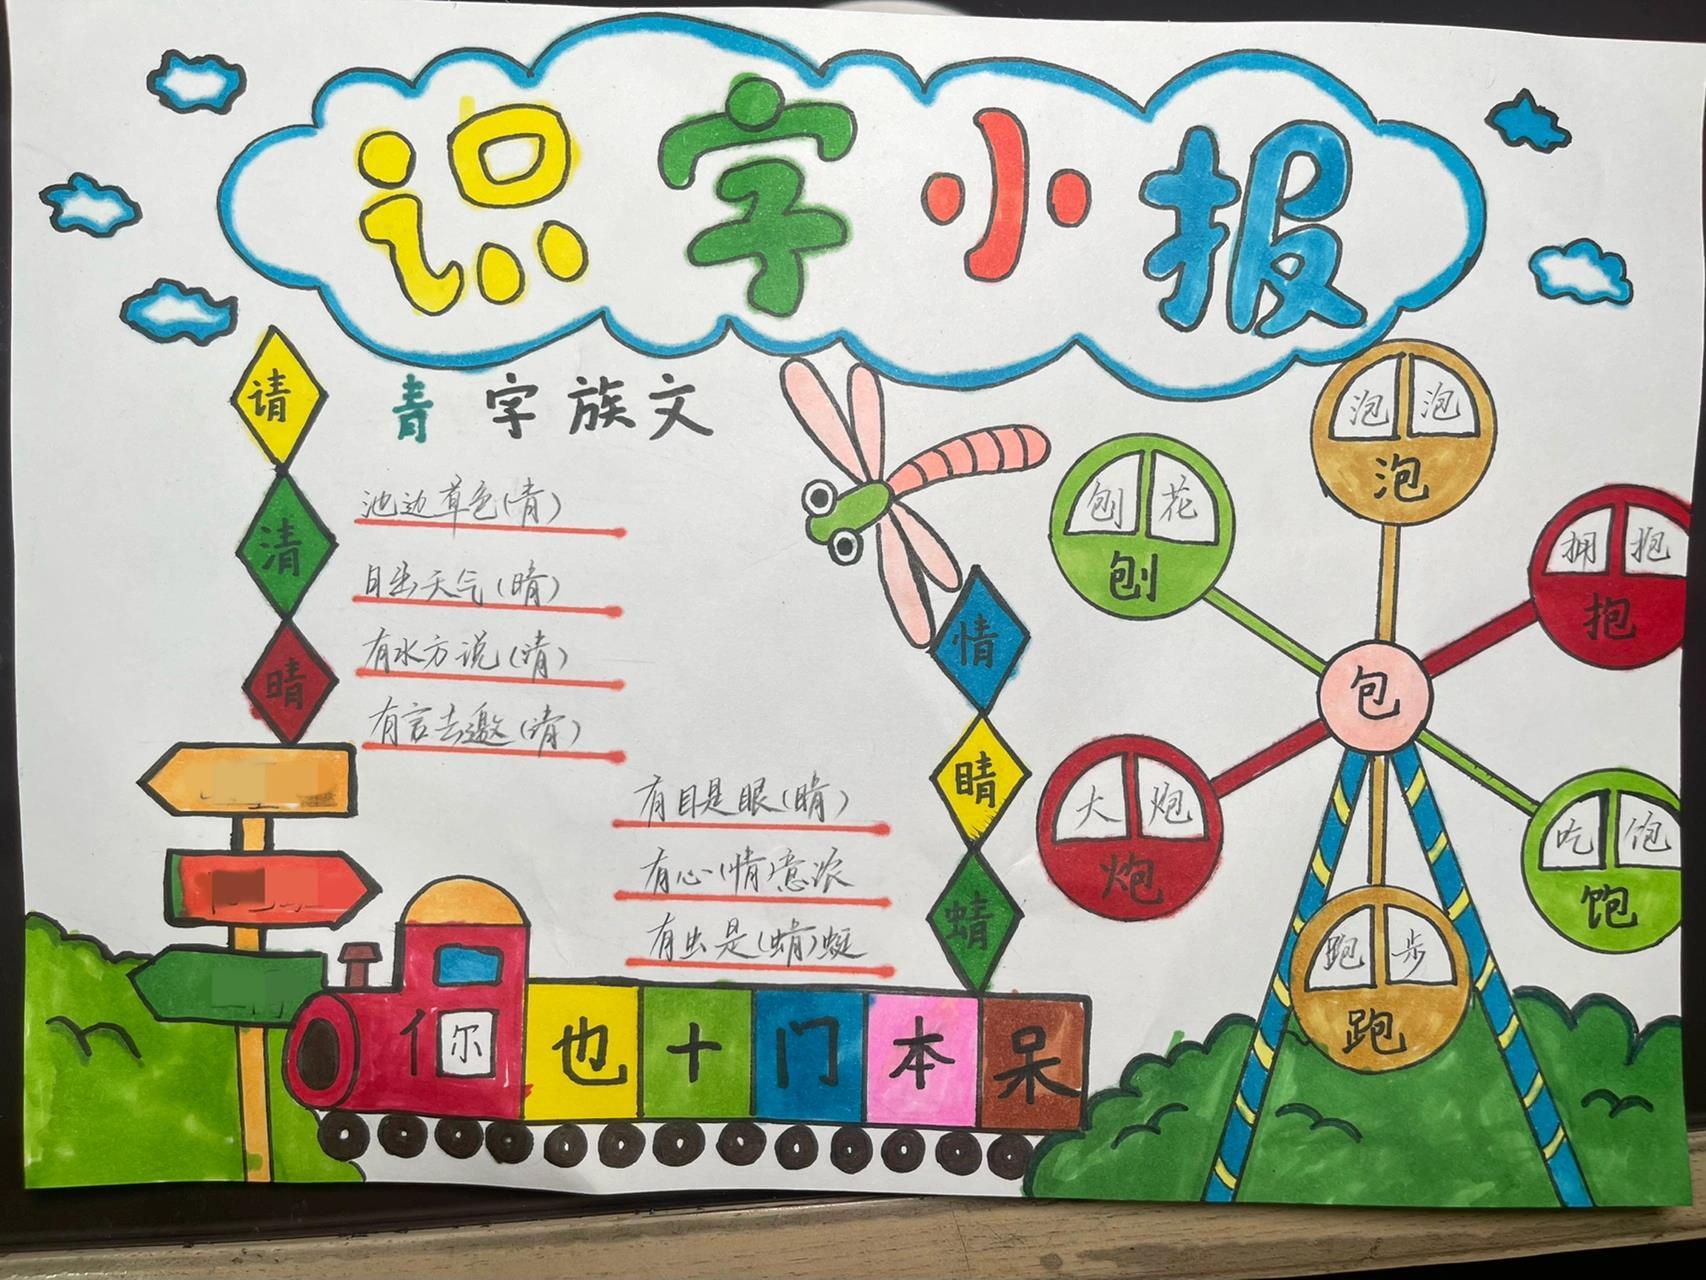 识字小报
青字族文
请
清
晴
池边草色(青)
日出天气(晴)
有水方说(清)
有言去邀(请)
有目是眼(睛)
有心(情)意浓
有虫是(蜻)蜓
情
睛
蜻
亻 尔 也 十 门 本 呆
包
泡泡
泡
刨花
刨
拥抱
抱
大炮
炮
吃饱
饱
跑步
跑